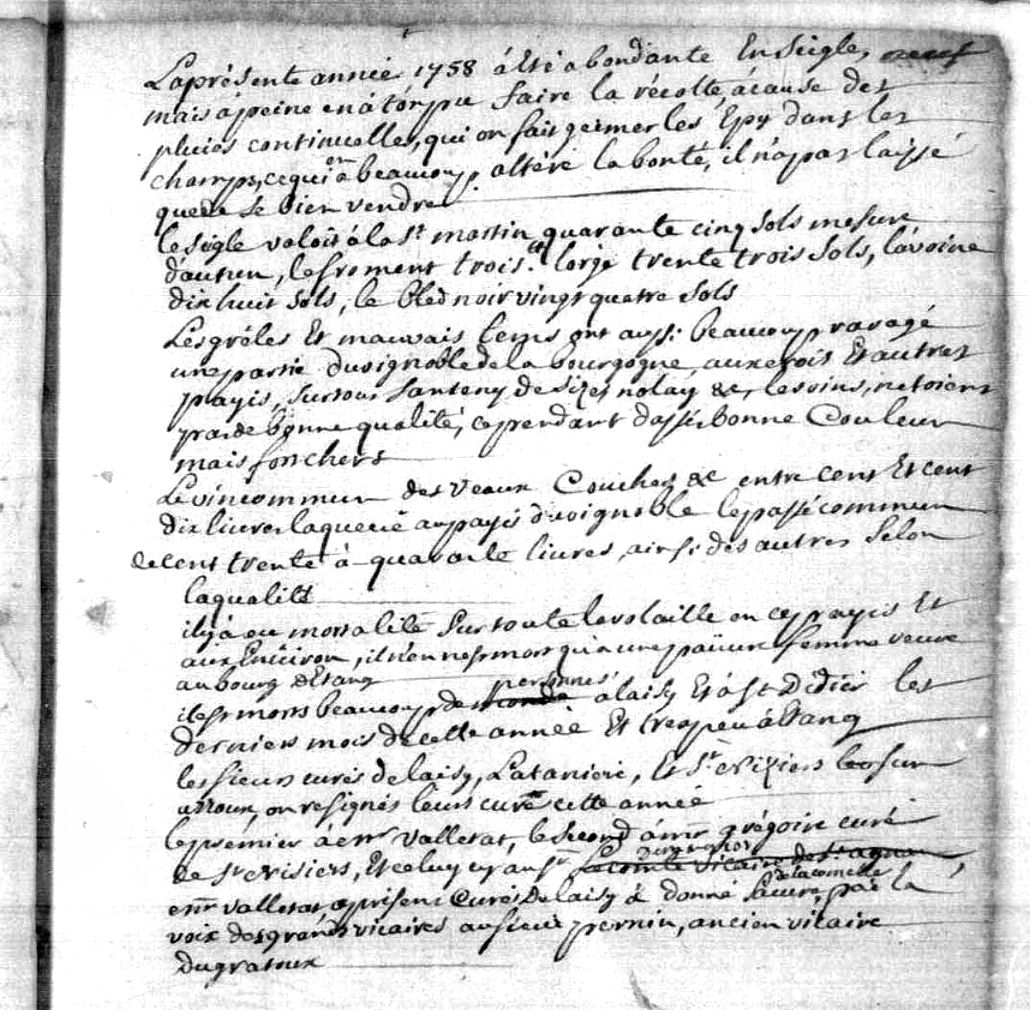 La présente année 1758 à Eté abondante En seigle,
mais à peine en à t'on pu faire la récolté à cause des
pluies continuelles, qui on fait germer les Epy dans les
champs, ce qui en à beaucoup altéré la bonté, il n'a pas laissé
que de se bien vendre
le seigle valoit à la St martin quarante cinq sols mesure
d'autun, le froment trois tt l'orje trente trois sols, l'avoine
dix huit sols, le bled noir vingt quatre sols
Les grêles Et mauvais tems ont aussi beaucoup ravagé
une partie du vignoble de la bourgogne, auxerois Et autres
payis, surtout santeny, nolay &c, les vins, n'etoient
pas de bonne qualité, cependant d'assés bonne Couleur
mais fon chers
Le vin commun des veaux Couches &c entre cent Et cent
dix livres la queue au payis du vignoble le passé commun
de cent trente à quarante livres, ainsi des autres selon
la qualité
il y à eu mortalité sur toute la volaille en ce payis Et
aux Environ, il n'en n'est mort qu'une pauvre femme veuve
au bourg d'Etang
il est morts beaucoup de personnes a laisy Et à st Didier les
derniers mois de cette année Et tres peu à Etang
les sieurs curés de laisy, La taniere, Et St. evisiers sur
arroux, on resignés leurs cure cette année
le premier à mr vallerat, le second à mr grégoire curé
de St evisiers, Et celuy cy à un sr Le comte vicaire de st agnan
de la comelle
mr vallerat à présent Curé de laisy à donné sa cure, par la
voix des grands vicaires au sieur pernin, ancien vicaire
du gratoux